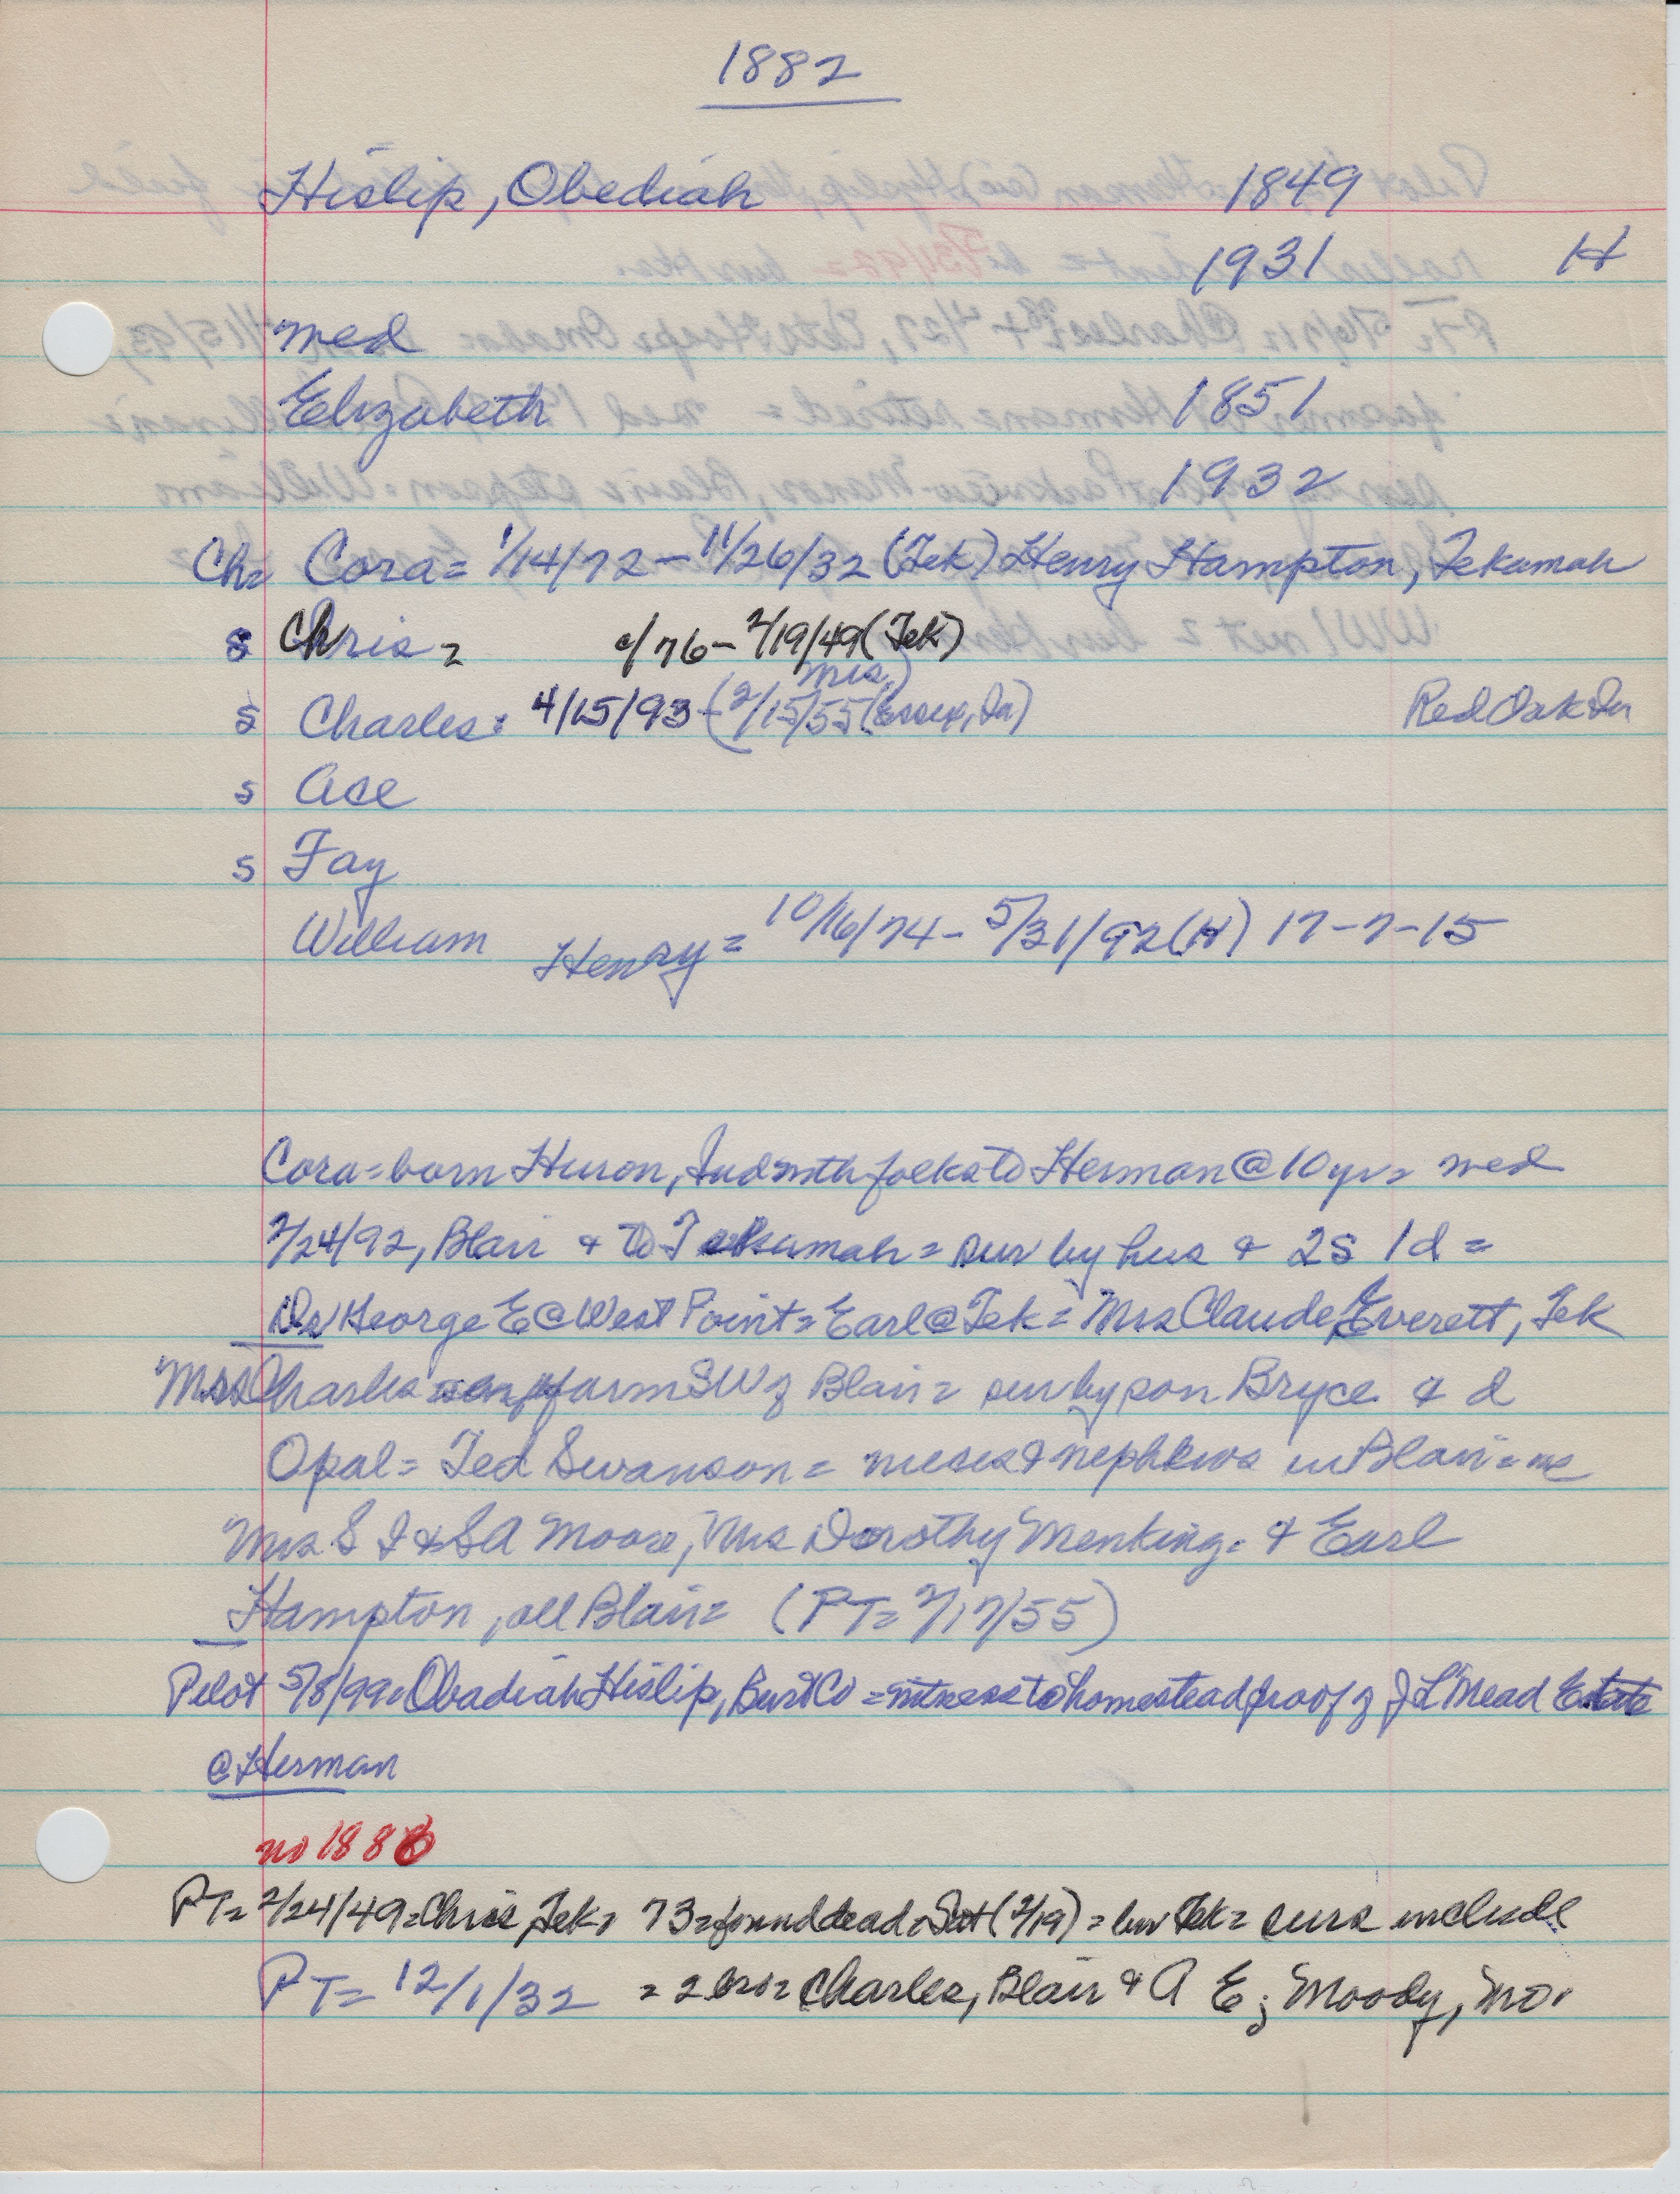 1882
Hislip, Obediah 1849
1931 H
med
Elizabeth 1851
1932
Ch= Cora= 1/14/72 - 11/26/32 (Tek) Henry Hampton, Tekamah
s Chris = c/76 - 2/19/49 (Tek)
Mrs.
s Charles: 4/15/93 - (2/15/55 (Essex, Ia) Red Oak Ia
s Ace
s Fay
William Henry = 10/16/74 - 5/31/92 (H) 17-7-15
Cora = born Huron, Ind with folks to Herman @ 10 yr = med
2/24/92, Blair & to Tekamah = sur by hus & 2s 1d =
Dr George E @ West Point = Earl @ Tek = Mrs Claude Everett, Tek
Mrs Charles farm SW of Blair = sur by son Bryce & d
Opal = Ted Swanson = nieces & nephews in Blair =
Mrs S I & S A Moore, Mrs Dorothy Menking. & Earl
Hampton, all Blair = (PT= 2/17/55)
Pilot 5/8/99 = Obadiah Hislip, Burt Co = witness to homestead proof of J L Mead Estate
@ Herman
no 1886
PT= 2/24/49 = Chris, Tek, 73 = found dead Sat (2/19) = bur Tek = surs include
PT= 12/1/32 = 2 bro = Charles, Blair & A E; Moody, Mo.